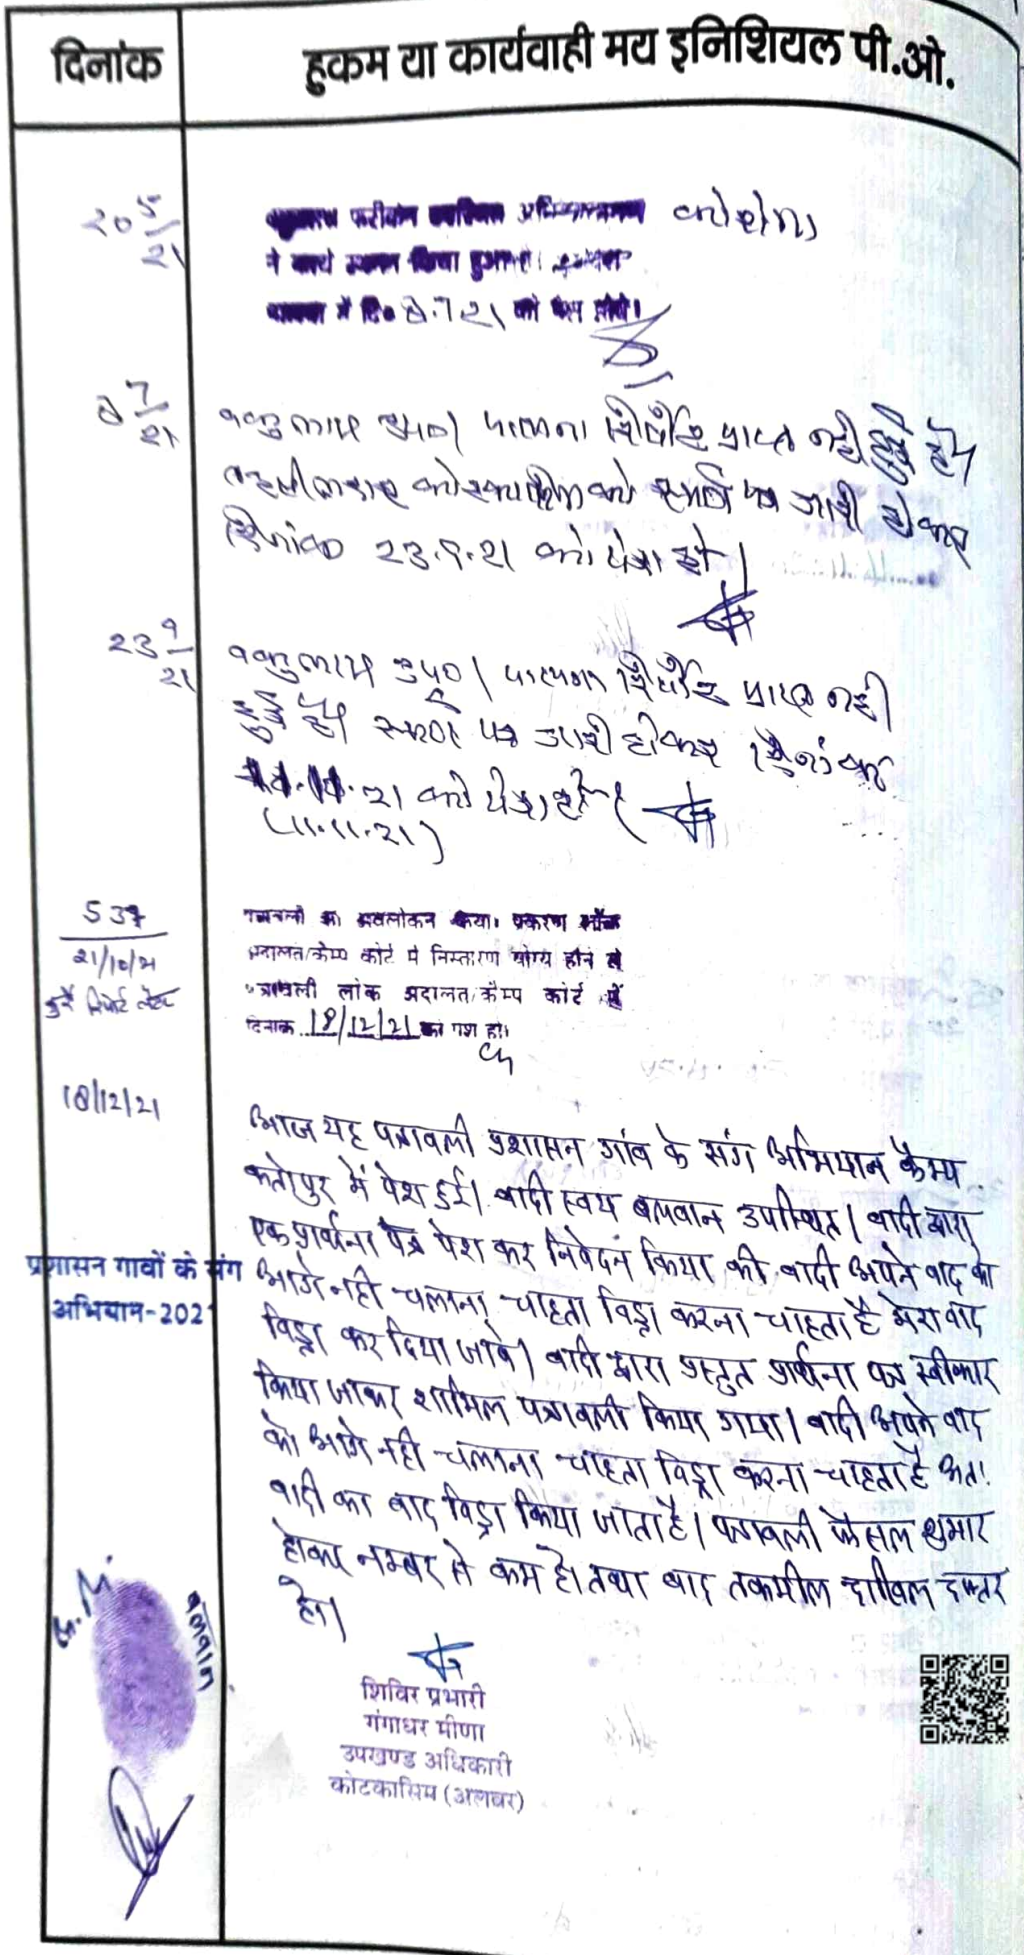 दिनांक
हुकम या कार्यवाही मय इनिशियल पी.ओ.
20 5/21
कोरोना
ने कार्य स्थगन किया हुआ है।
में दि० 8.7.21 को पेश होवे।
8 7/21
वकुलाय उप०। पालना रिपोर्ट प्राप्त नही हुई है।
तहसीलदार कोटकासिम को स्मरण पत्र जारी होकर
दिनांक 23.9.21 को पेश हो।
23 9/21
वकुलाय उप०। पालना रिपोर्ट प्राप्त नही
हुई है। स्मरण पत्र जारी होकर दिनांक
11.11.21 को पेश हो।
(11.11.21)
537
21/10/21
पत्रावली का अवलोकन किया। प्रकरण लोक
अदालत/केम्प कोर्ट में निस्तारण योग्य होने से
पत्रावली लोक अदालत/कैम्प कोर्ट में
दिनांक 18/12/21 को पेश हो।
18/12/21
आज यह पत्रावली प्रशासन गांव के संग अभियान कैम्प
में पेश हुई। वादी स्वयं बलवान उपस्थित। वादी द्वारा
एक प्रार्थना पत्र पेश कर निवेदन किया की वादी अपने वाद को
प्रशासन गावों के संग
अभियान-2021
आगे नही चलाना चाहता विड्रा करना चाहता है मेरा वाद
विड्रा कर दिया जावे। वादी द्वारा प्रस्तुत प्रार्थना पत्र स्वीकार
किया जाकर शामिल पत्रावली किया गया। वादी अपने वाद
को आगे नही चलाना चाहता विड्रा करना चाहता है अतः
वादी का वाद विड्रा किया जाता है। पत्रावली फैसल शुमार
होकर नम्बर से कम हो तथा बाद तकमील दाखिल दफ्तर
हो।
बलवान
शिविर प्रभारी
गंगाधर मीणा
उपखण्ड अधिकारी
कोटकासिम (अलवर)